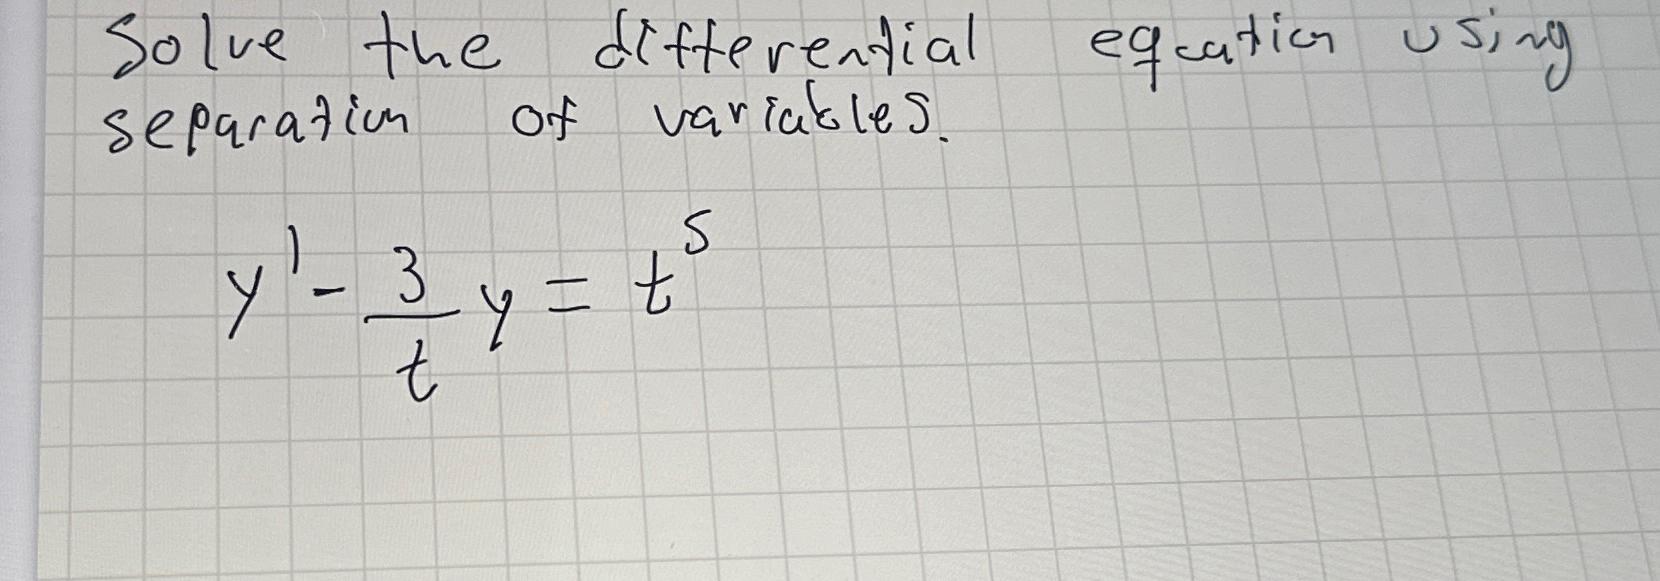 Solve the differential equation using
separation of variables.
y' - 3/t y = t^5